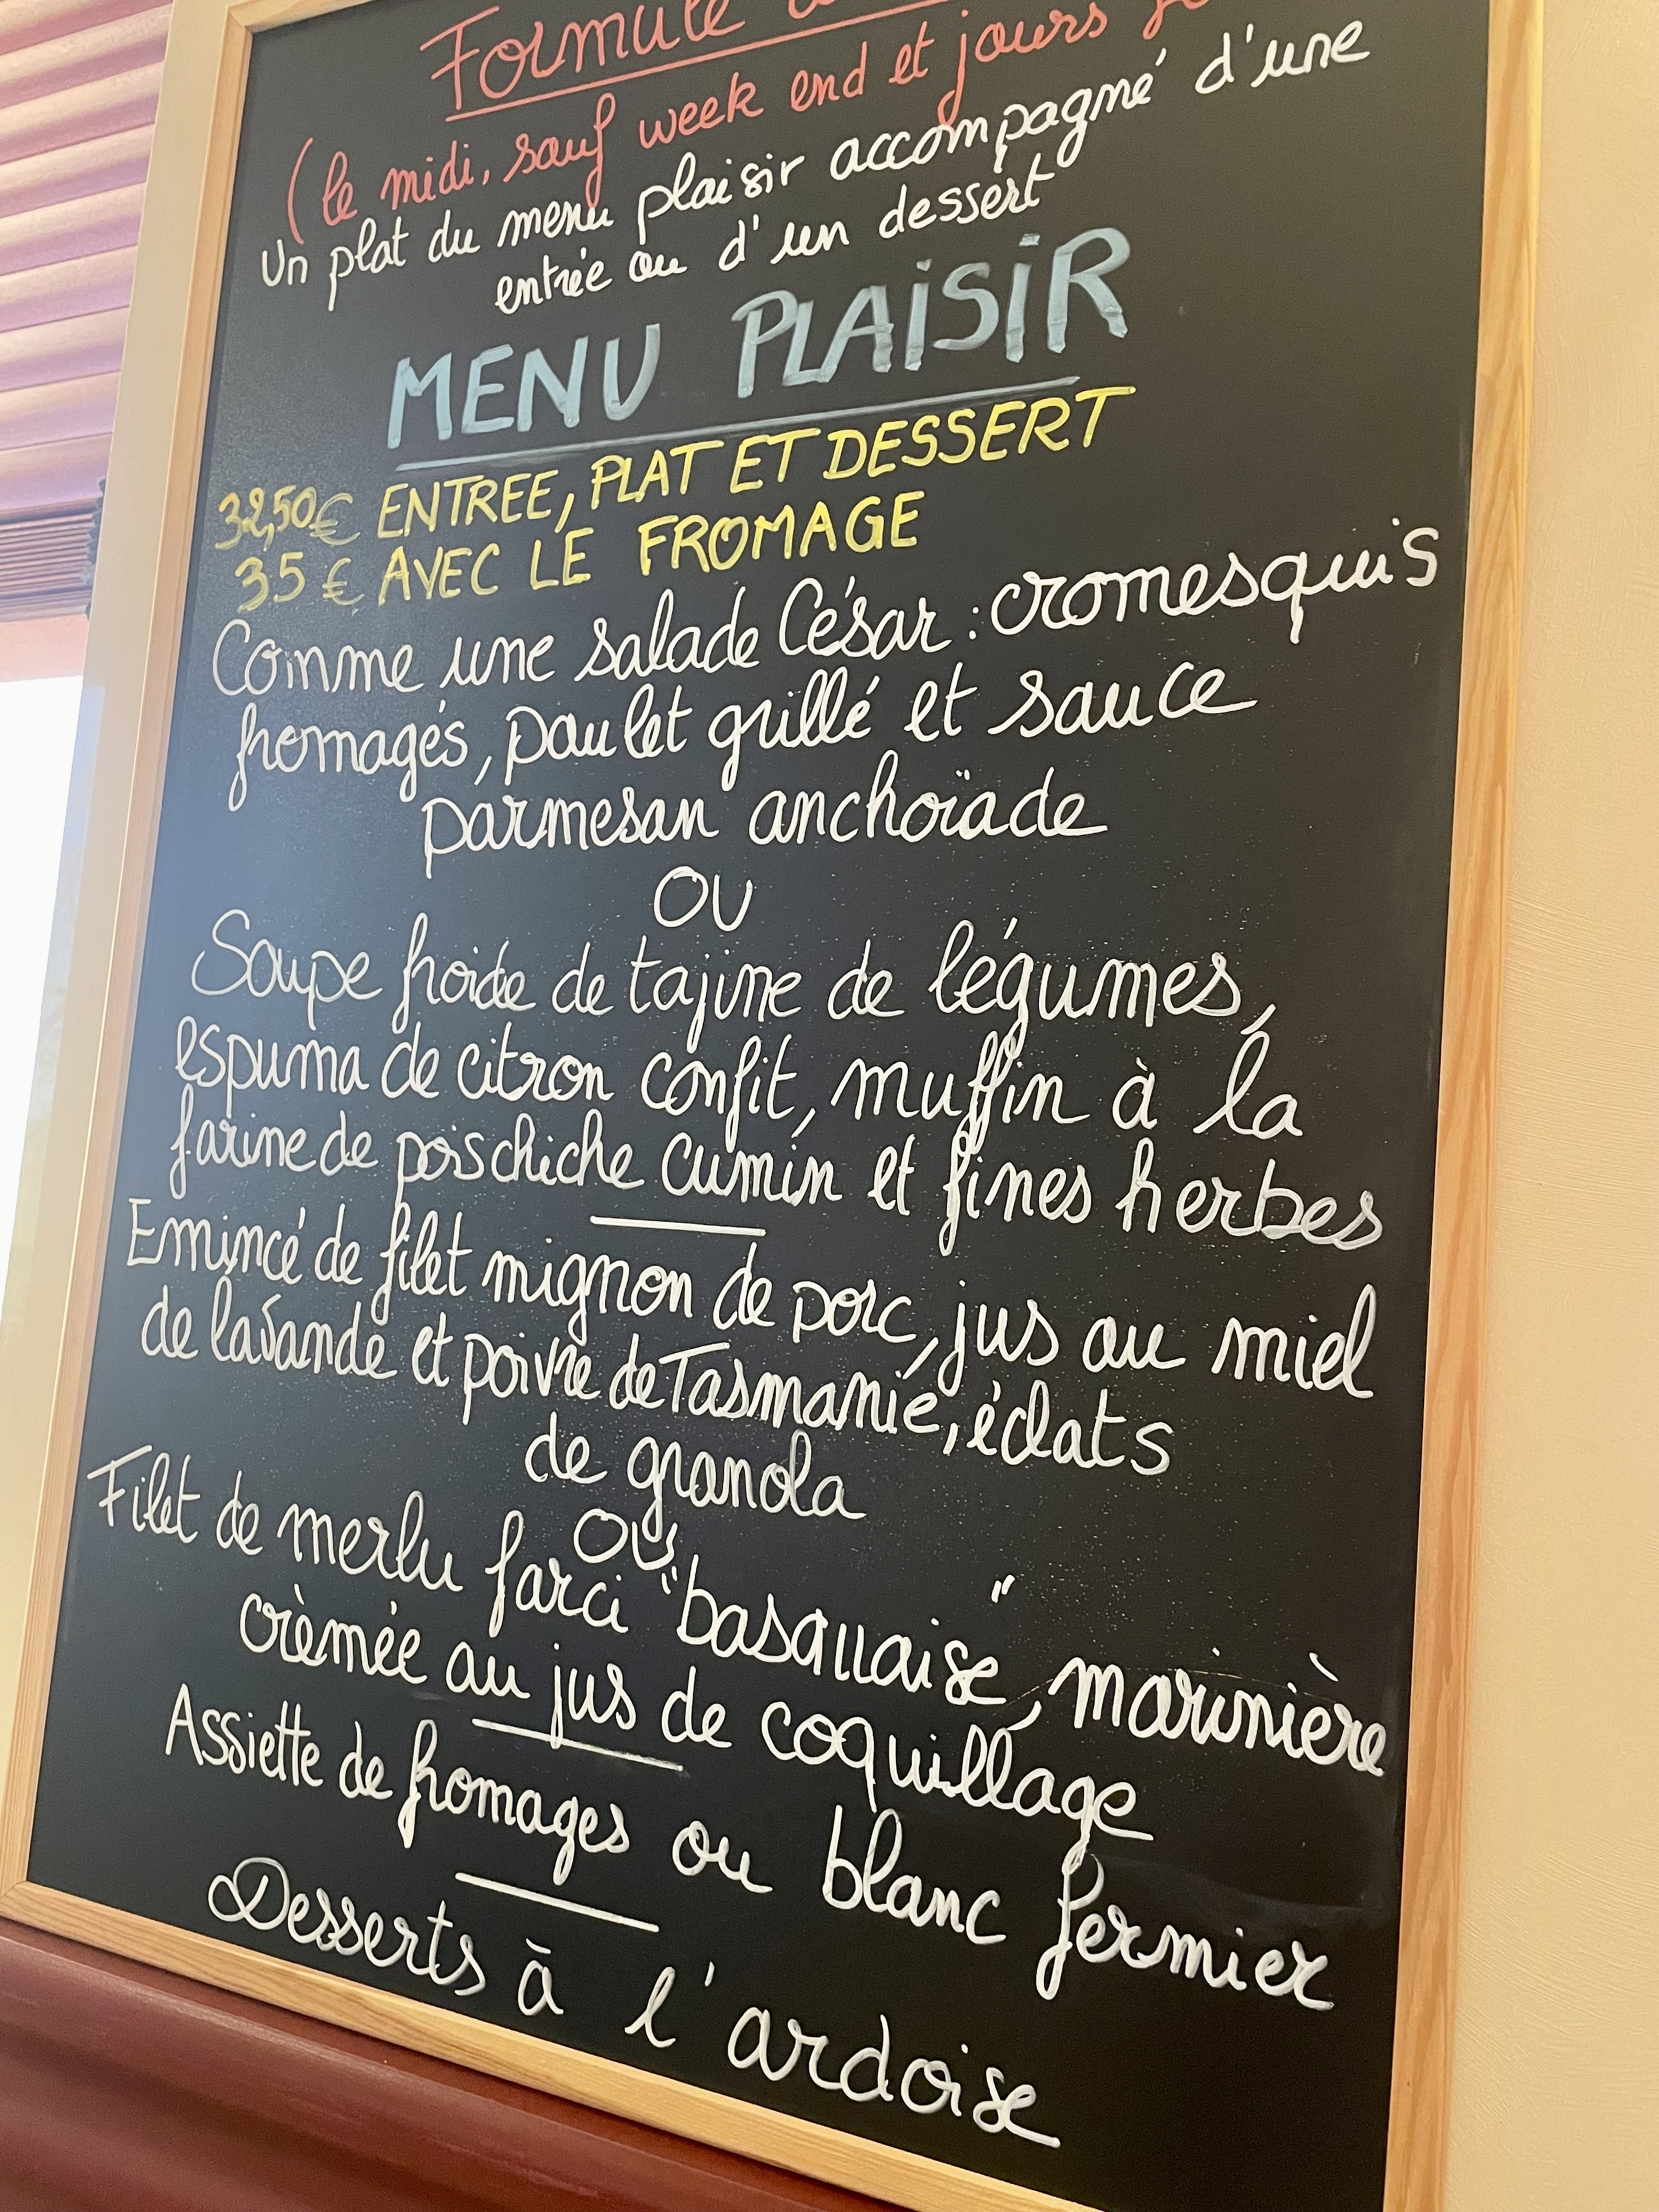 Formule
(le midi, sauf week end et jours
Un plat du menu plaisir accompagné d'une
entrée ou d'un dessert
MENU PLAISIR
32,50€ ENTREE, PLAT ET DESSERT
35€ AVEC LE FROMAGE
Comme une salade César : cromesquis
fromagés, poulet grillé et sauce
parmesan anchoïade
OU
Soupe froide de tajine de légumes,
espuma de citron confit, muffin à la
farine de pois chiche cumin et fines herbes
Emincé de filet mignon de porc, jus au miel
de lavande et poivre de Tasmanie, éclats
de granola
OU
Filet de merlu farci "basquaise", marinière
crèmée au jus de coquillage
Assiette de fromages ou blanc fermier
Desserts à l'ardoise